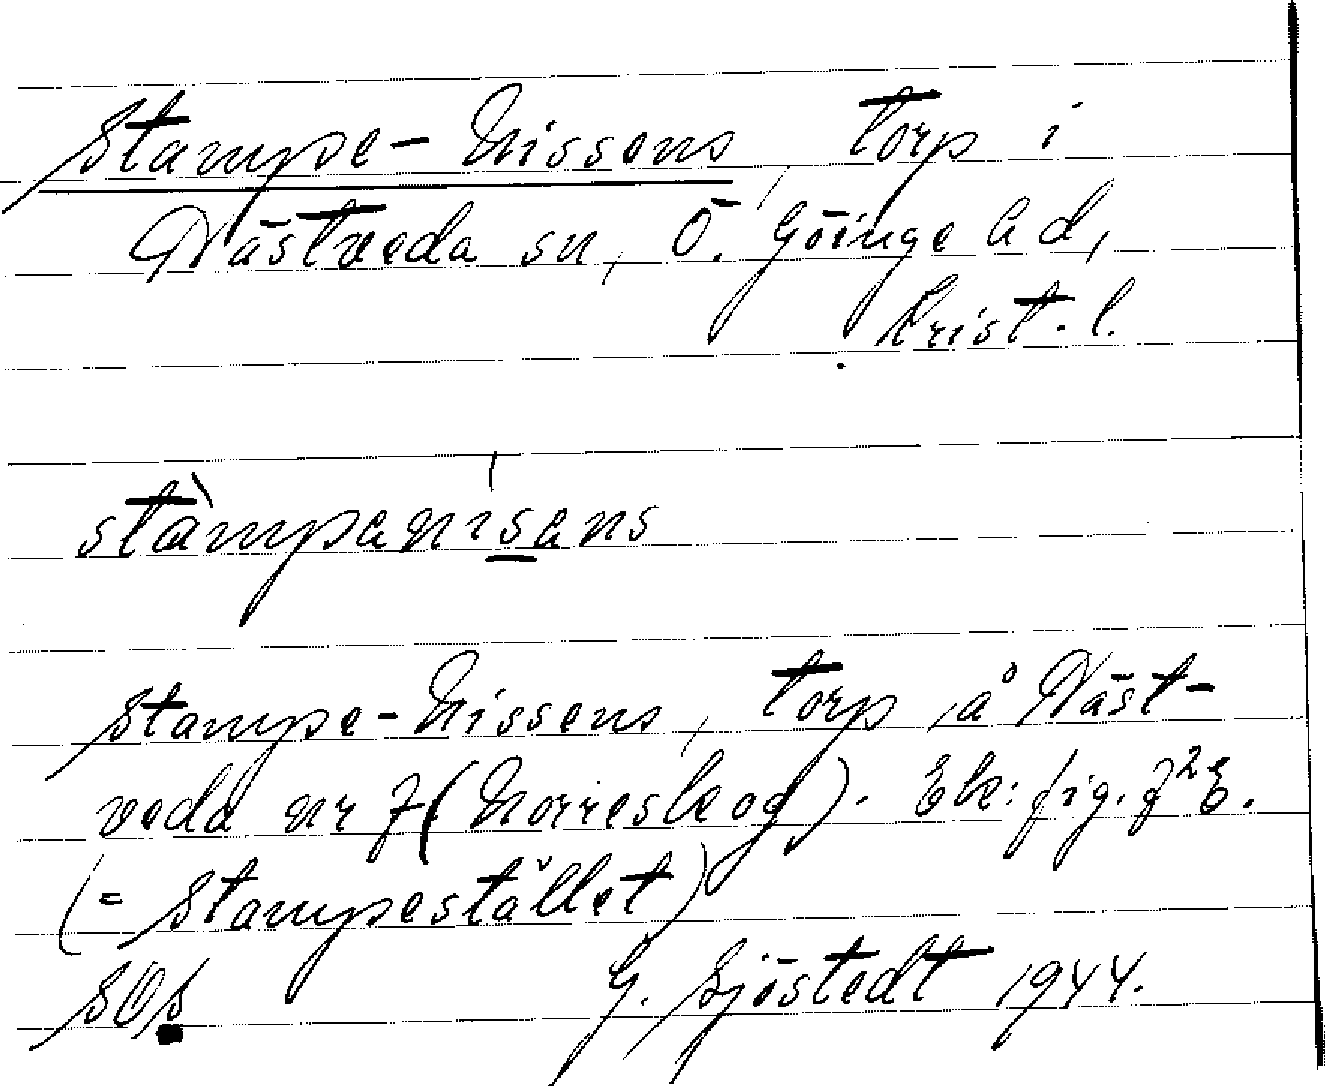 Stampe-Nissens, torp i
Västveda sn, Ö. Göinge hd,
Krist. l.
stàmpanisans
Stampe-Nissens, torp å Väst-
veda nr 7 (Norreskog). Ek: fig. 7²E.
(= Stampestället)
SOS
G. Sjöstedt 1944.